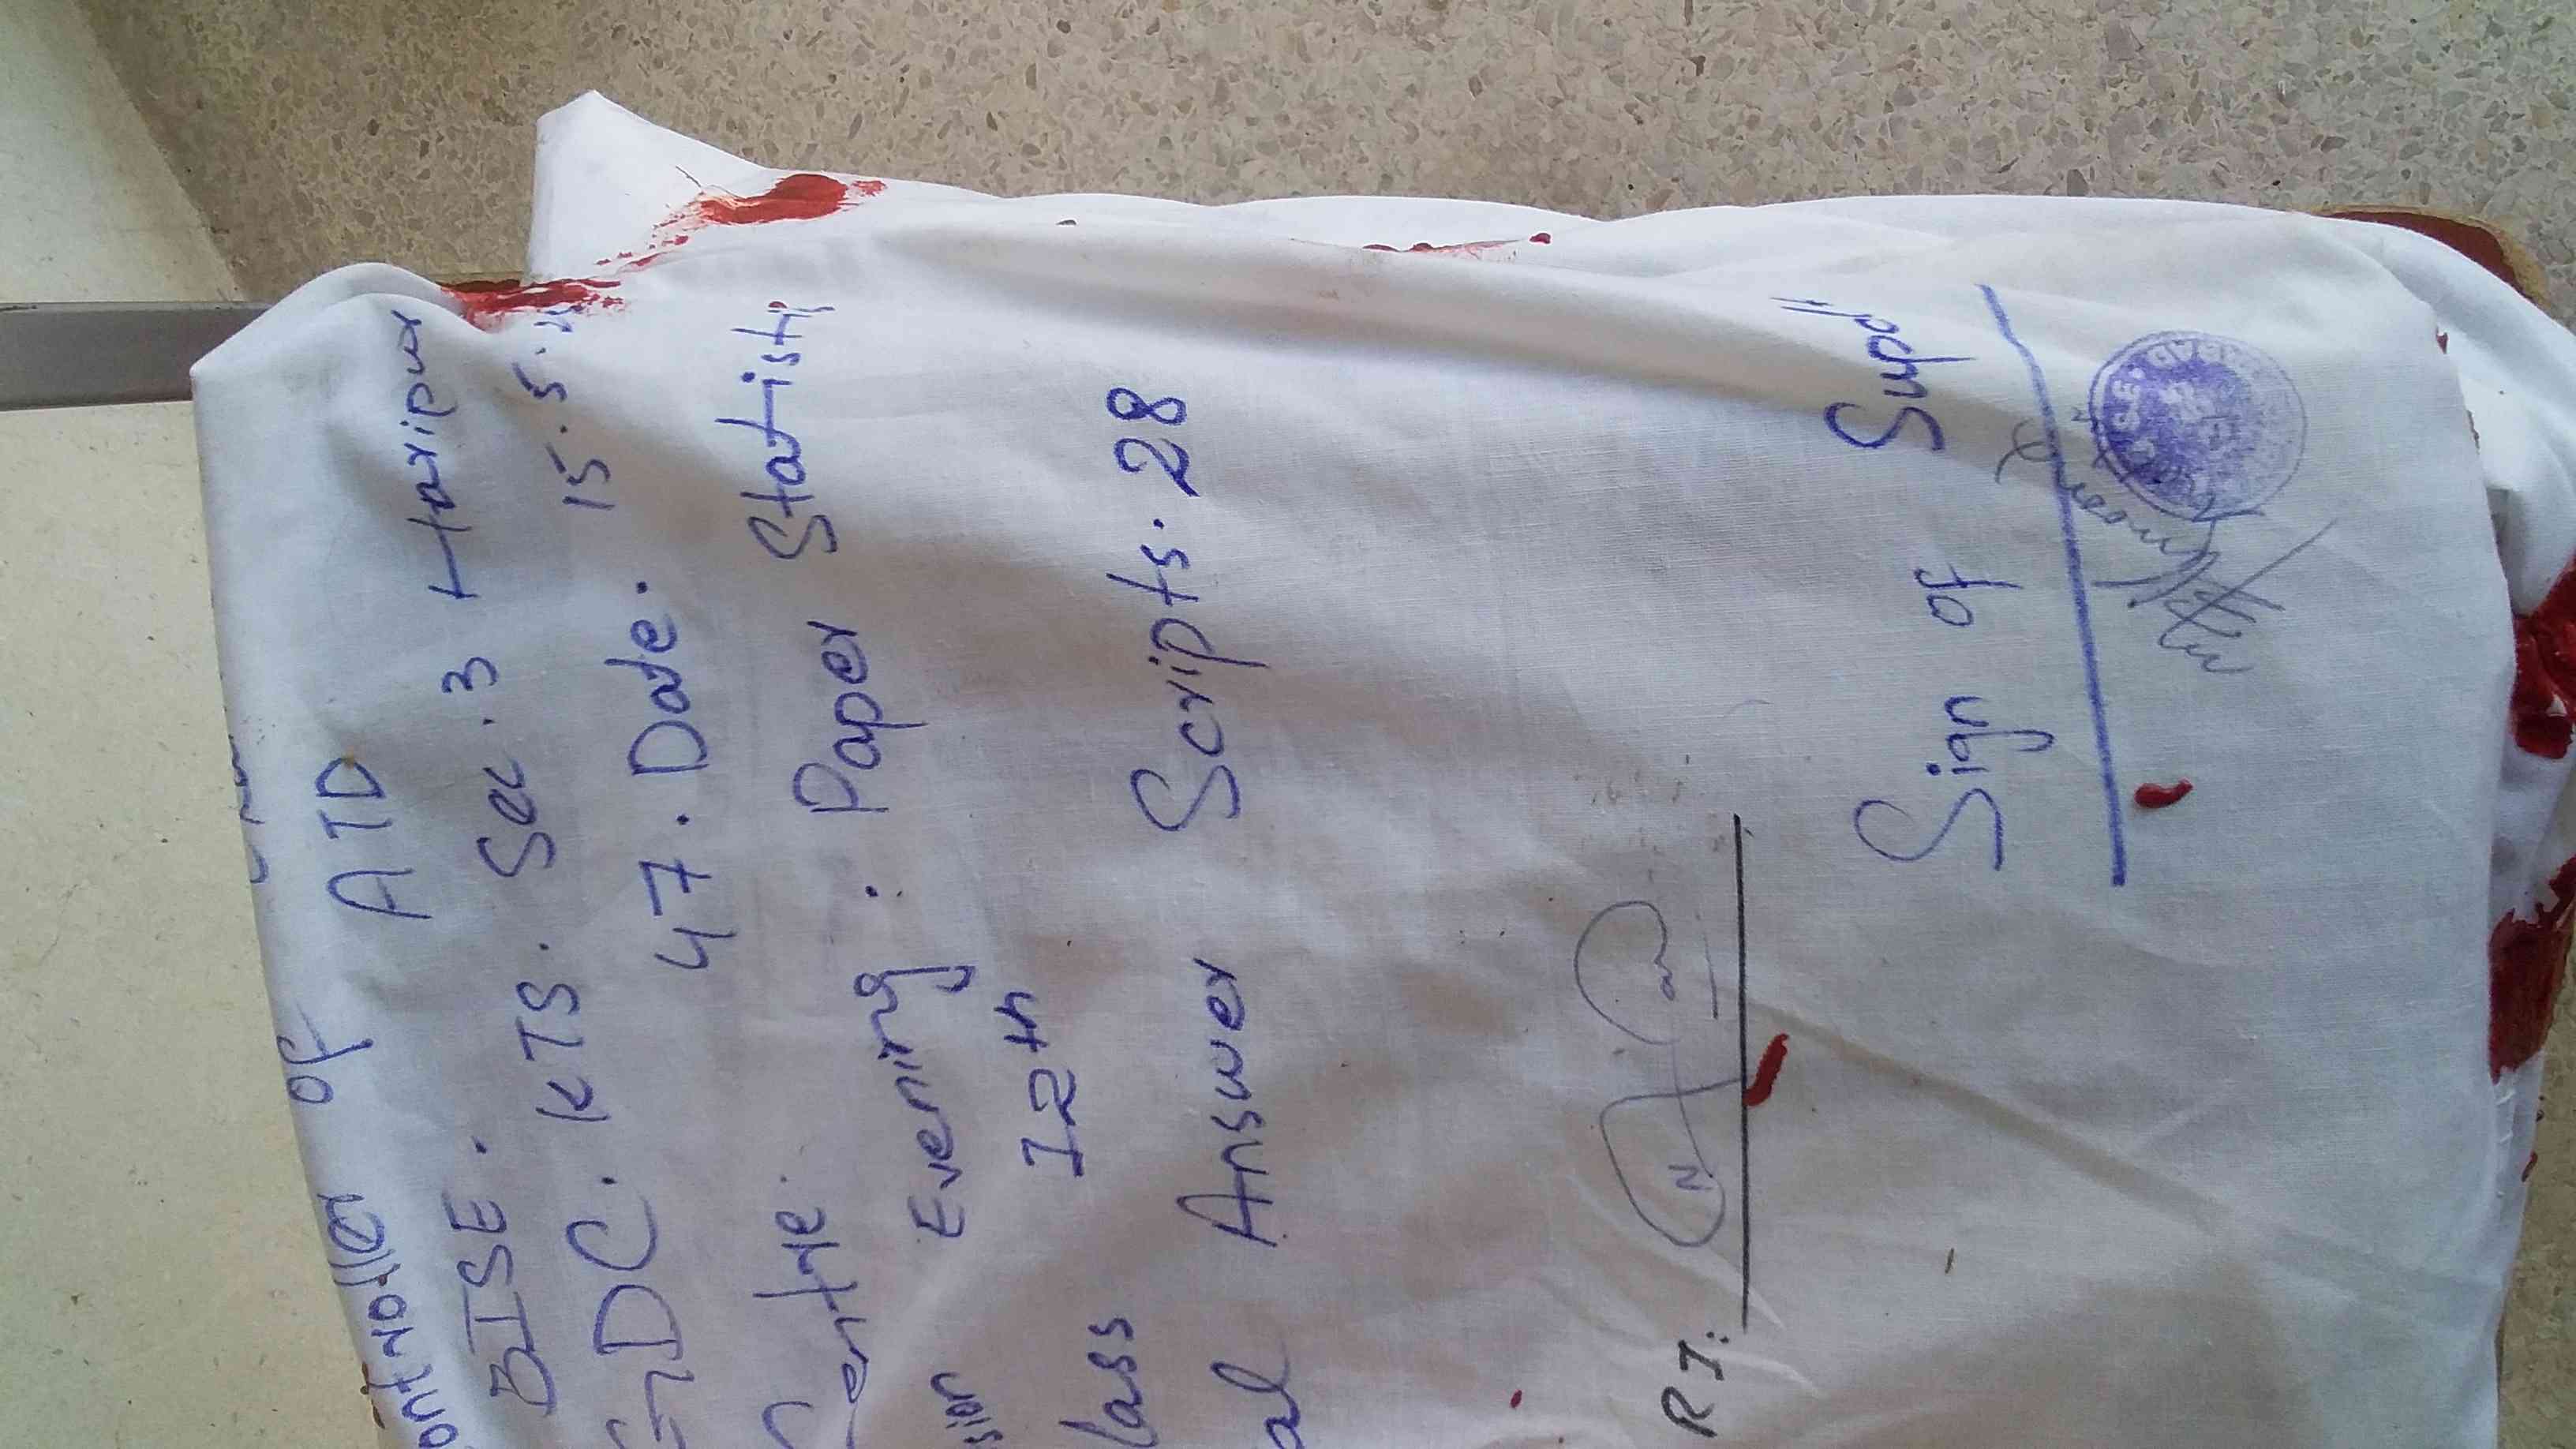 ontroller of
BISE. ATD
GDC. KTS. Sec. 3 Haripur
entre. 47. Date. 15.5.
ssion Evening : Paper Statisti
lass 12th
al Answer Scripts. 28
R I:
Sign of Supdt